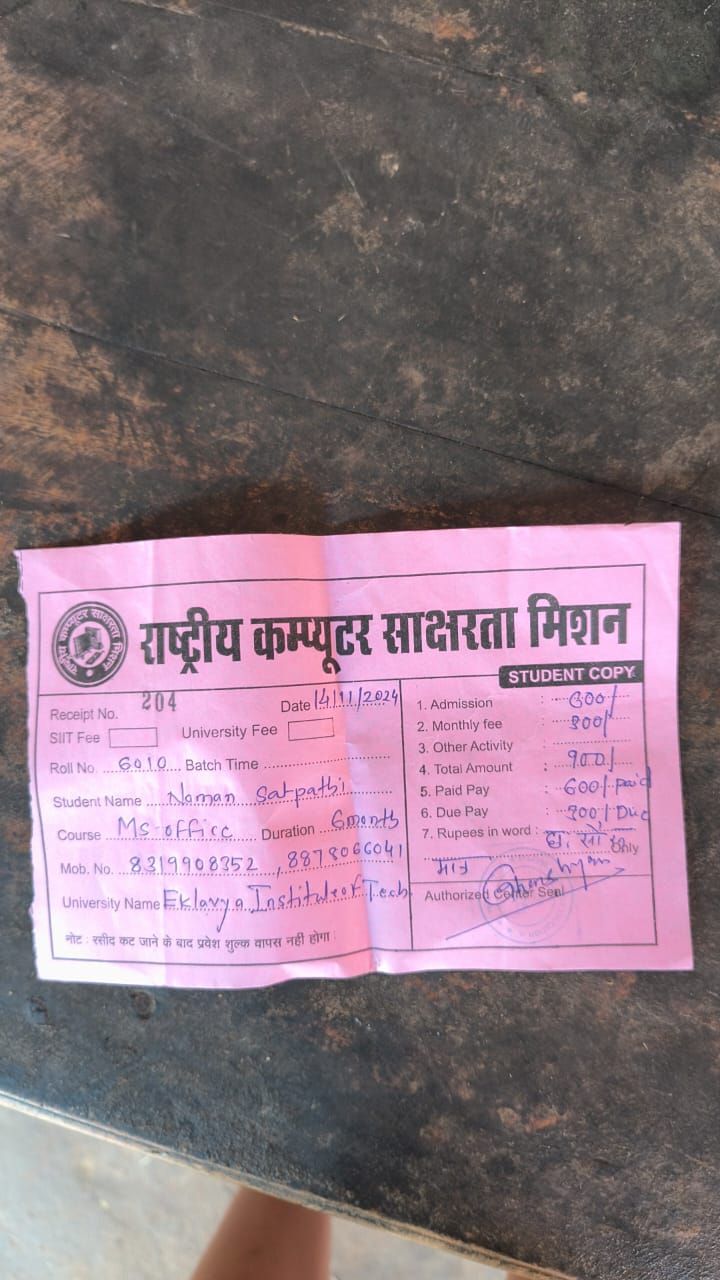 राष्ट्रीय कम्प्यूटर साक्षरता मिशन
राष्ट्रीय कम्प्यूटर साक्षरता मिशन
STUDENT COPY
Receipt No. 204 Date 14/11/2024
SIIT Fee University Fee
Roll No. 6010 Batch Time
Student Name Naman Satpathi
Course Ms-office Duration 6month
Mob. No. 8319908352, 8878066041
University Name Eklavya Institute of Tech.
नोट : रसीद कट जाने के बाद प्रवेश शुल्क वापस नही होगा
1. Admission : 600/
2. Monthly fee : 300/
3. Other Activity :
4. Total Amount : 900/.
5. Paid Pay : 600/ paid
6. Due Pay : 300/ Due
7. Rupees in word : छः सौ रु
मात्र Only
Authorized Center Seal